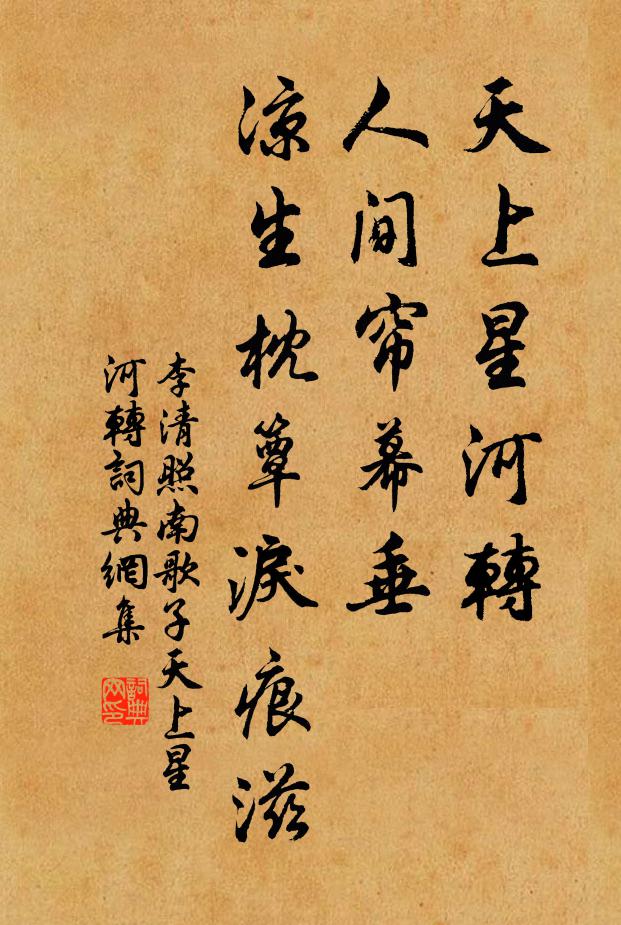 天上星河轉
人间帘幕垂
凉生枕簟淚痕滋
李清照南歌子天上星
河轉詞典網集
詞典
网印